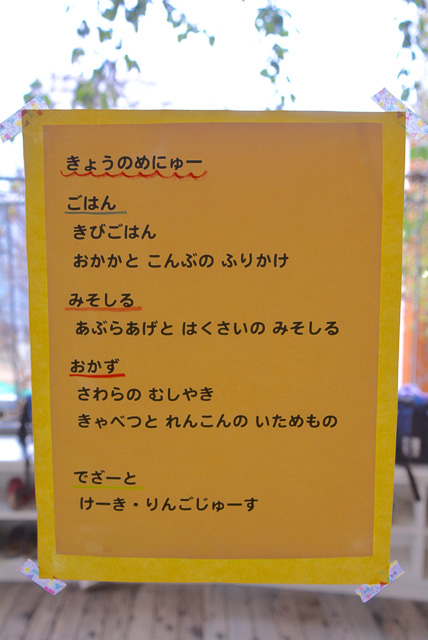 きょうのめにゅー
ごはん
きびごはん
おかかと こんぶの ふりかけ
みそしる
あぶらあげと はくさいの みそしる
おかず
さわらの むしやき
きゃべつと れんこんの いためもの
でざーと
けーき・りんごじゅーす